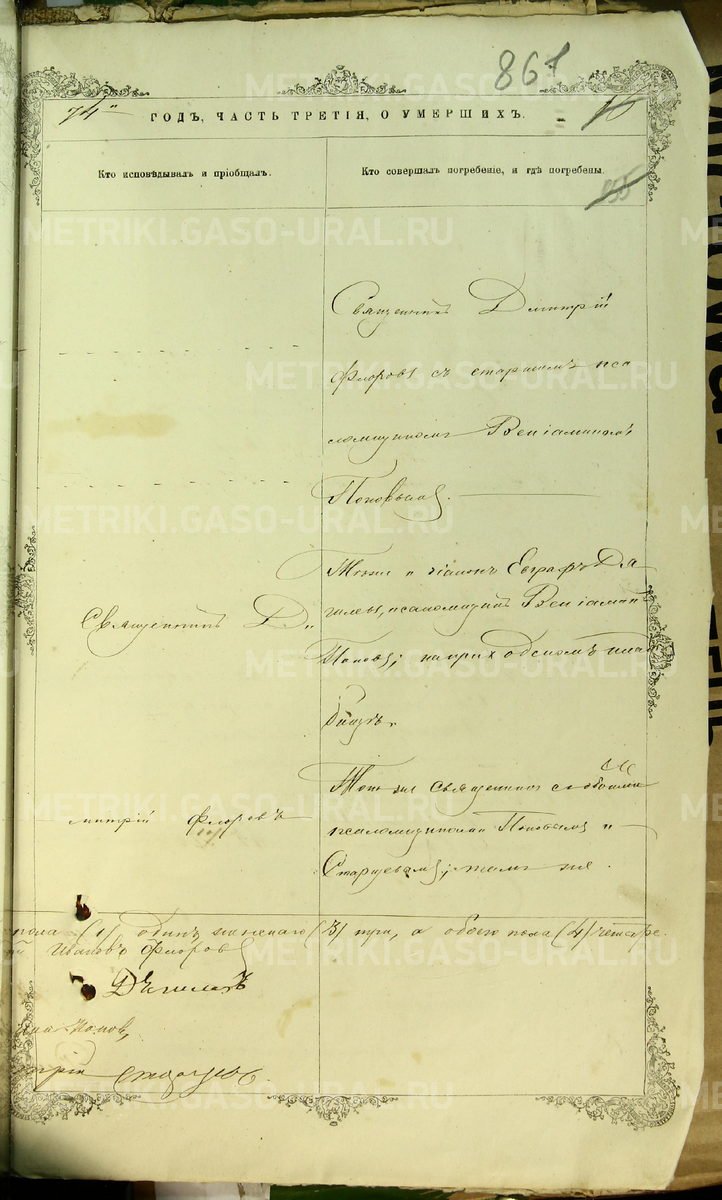 861
74
ГОДЪ, ЧАСТЬ ТРЕТІЯ, О УМЕРШИХЪ.
Кто исповѣдывалъ и пріобщалъ.
Кто совершалъ погребеніе, и гдѣ погребены.
Священникъ Дмитрій
Флоровъ съ старшимъ пса
ломщикомъ Веніаминомъ
Поповымъ.
Тотже и діаконъ Евграфъ Дя
гилевъ, псаломщикъ Веніаминъ
Поповъ; на приходскомъ клад
бищѣ.
Священникъ Ди
митрій Флоровъ
Тотъ же священникъ съ обоими
псаломщиками Поповымъ и
Старцевымъ; тамъ же.
пола (1) одинъ, женскаго (3) три, а обоего пола (4) четыре.
Іоаннъ Флоровъ
Дягилевъ
Поповъ,
METRIKI.GASO-URAL.RU